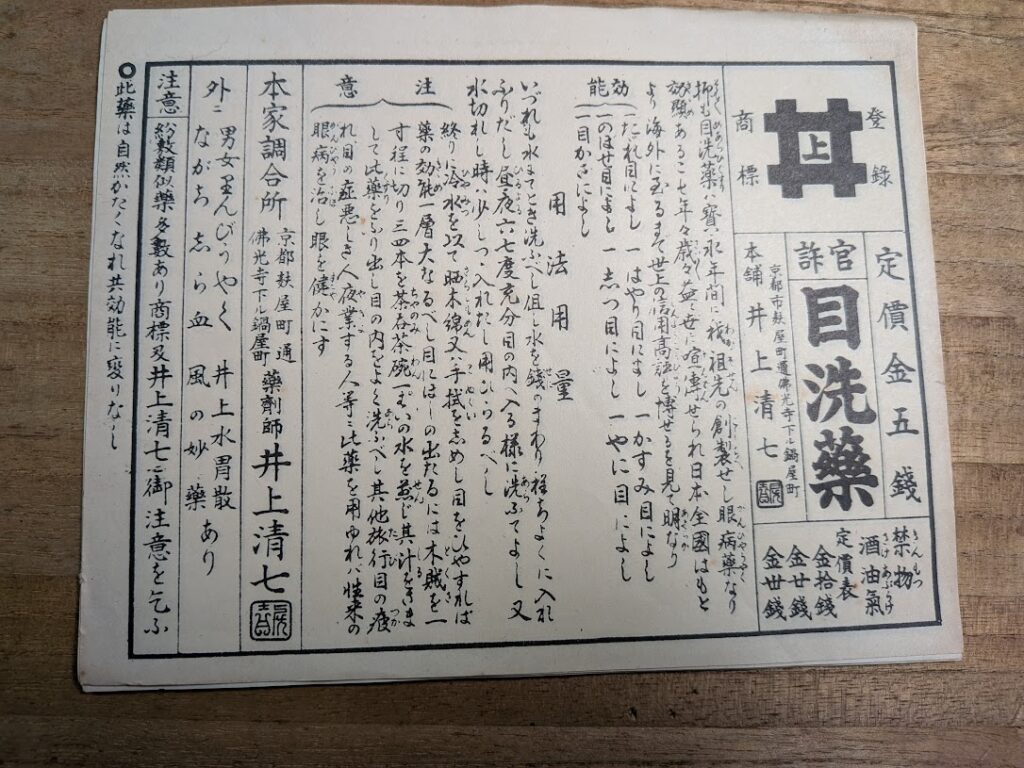 登錄
商標
上
定價金五錢
官許
目洗藥
京都市麩屋町通佛光寺下ル鍋屋町
本舗 井上清七
禁物
酒油氣
定價表
金拾錢
金廿錢
金廿錢
抑も目洗藥ハ寶永年間に我祖先の創製せし眼病藥なり
効顯あること年々歳々益世に喧傳せられ日本全國はもと
より海外に至るまで世上の信用高評を博せるを見て明なり
効能
一たれ目によし 一はやり目によし 一かすみ目によし
一のほせ目によし 一志つ目によし 一やに目によし
一目かさによし
用法用量
いづれも水にてとき洗ふべし但し水を錢のまわり程よくに入れ
ふりだし昼夜六七度充分目の内へ入る様に洗ふてよし又
水切れし時ハ少しつゝ入れたし用ひらるべし
注意
終りに冷水を以て晒木綿又ハ手拭を志めし目をひやすれば
藥の効能一層大なるべし目にほしの出たるには木賊を一
寸程に切り三四本を茶呑茶碗一ぱいの水を煎じ其汁をさま
して此藥をふり出し目の内をよく洗ふべし其他旅行目の疲
れ目の症悪しき人夜業する人等ハ此藥を用ゆれバ性来の
眼病を治し眼を健かにす
本家調合所
京都麩屋町通
佛光寺下ル鍋屋町
藥劑師 井上清七
外ニ
男女りんびょうやく 井上水胃散
ながち 志ら血 風の妙藥
あり
注意
紛敷類似藥多數あり商標及井上清七ニ御注意を乞ふ
此藥は自然かたくなれ共効能に変りなし